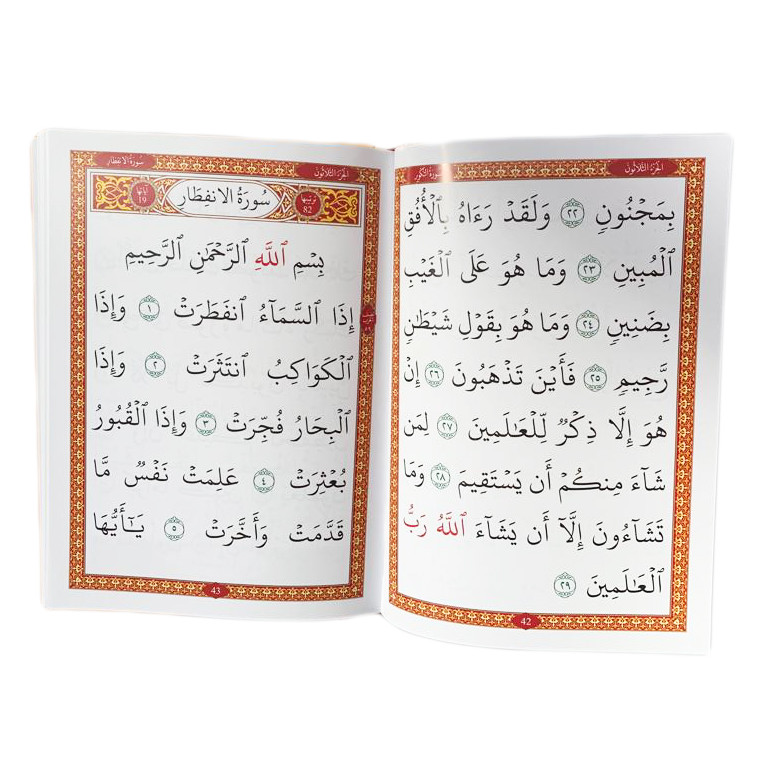 الجزء الثلاثون
سورة التكوير
بِمَجْنُونٍ ٢٢ وَلَقَدْ رَءَاهُ بِٱلْأُفُقِ
ٱلْمُبِينِ ٢٣ وَمَا هُوَ عَلَى ٱلْغَيْبِ
بِضَنِينٍ ٢٤ وَمَا هُوَ بِقَوْلِ شَيْطَٰنٍ
رَّجِيمٍ ٢٥ فَأَيْنَ تَذْهَبُونَ ٢٦ إِنْ
هُوَ إِلَّا ذِكْرٌ لِّلْعَٰلَمِينَ ٢٧ لِمَن
شَآءَ مِنكُمْ أَن يَسْتَقِيمَ ٢٨ وَمَا
تَشَآءُونَ إِلَّآ أَن يَشَآءَ ٱللَّهُ رَبُّ
ٱلْعَٰلَمِينَ ٢٩
42
الجزء الثلاثون
سورة الانفطار
ترتيبها 82
سُورَةُ الانفِطَار
آياتها 19
بِسْمِ ٱللَّهِ ٱلرَّحْمَٰنِ ٱلرَّحِيمِ
إِذَا ٱلسَّمَآءُ ٱنفَطَرَتْ ١ وَإِذَا
ٱلْكَوَاكِبُ ٱنتَثَرَتْ ٢ وَإِذَا
ٱلْبِحَارُ فُجِّرَتْ ٣ وَإِذَا ٱلْقُبُورُ
بُعْثِرَتْ ٤ عَلِمَتْ نَفْسٌ مَّا
قَدَّمَتْ وَأَخَّرَتْ ٥ يَٰٓأَيُّهَا
43